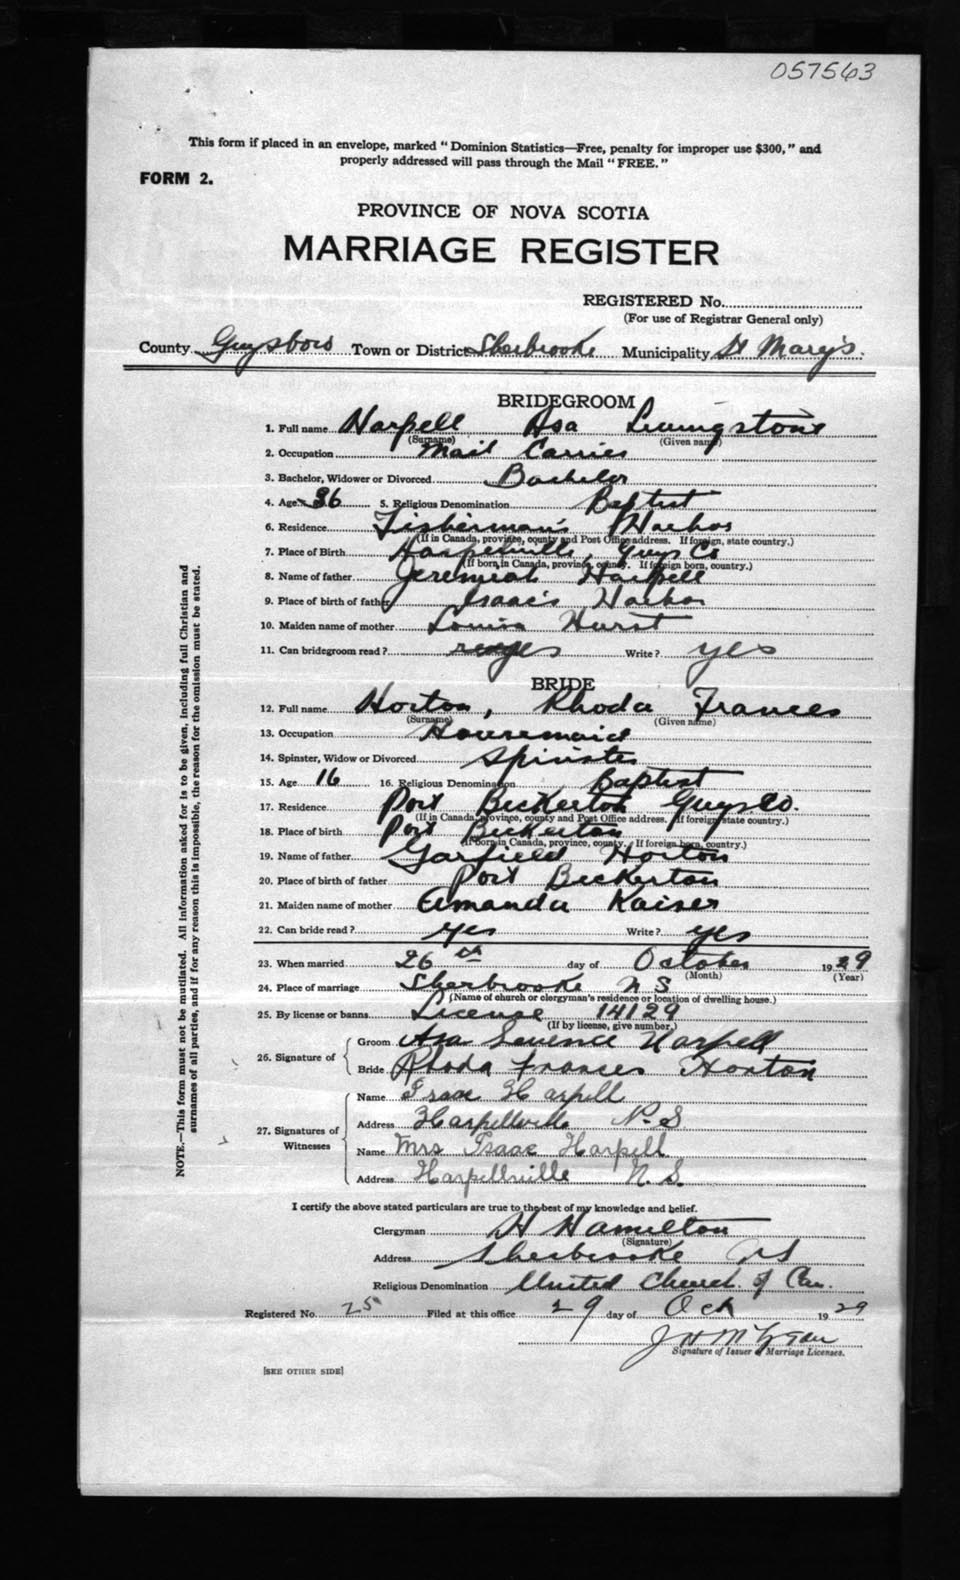 057563
This form if placed in an envelope, marked "Dominion Statistics—Free, penalty for improper use $300," and
properly addressed will pass through the Mail "FREE."
FORM 2.
PROVINCE OF NOVA SCOTIA
MARRIAGE REGISTER
REGISTERED No.
(For use of Registrar General only)
County Guysboro Town or District Sherbrooke Municipality St Mary's.
BRIDEGROOM
1. Full name Harpell Asa Livingstone
(Surname) (Given name)
2. Occupation Mail Carrier
3. Bachelor, Widower or Divorced Bachelor
4. Age 36 5. Religious Denomination Baptist
6. Residence Fisherman's Harbor
(If in Canada, province, county and Post Office address. If foreign, state country.)
7. Place of Birth Harpellville, Guys Co
(If born in Canada, province, county. If foreign born, country.)
8. Name of father Jeremiah Harpell
9. Place of birth of father Isaac's Harbor
10. Maiden name of mother Louisa Hurst
11. Can bridegroom read? yes Write? yes
BRIDE
12. Full name Horton, Rhoda Frances
(Surname) (Given name)
13. Occupation Housemaid
14. Spinster, Widow or Divorced Spinster
15. Age 16 16. Religious Denomination Baptist
17. Residence Port Beckerton Guys Co.
(If in Canada, province, county and Post Office address. If foreign, state country.)
18. Place of birth Port Beckerton
(If born in Canada, province, county. If foreign born, country.)
19. Name of father Garfield Horton
20. Place of birth of father Port Beckerton
21. Maiden name of mother Amanda Kaiser
22. Can bride read? yes Write? yes
23. When married 26th day of October 1929
(Month) (Year)
24. Place of marriage Sherbrooke N S
(Name of church or clergyman's residence or location of dwelling house.)
25. By license or banns License 14129
(If by license, give number.)
26. Signature of Groom Asa Harpell
Bride Rhoda Frances Horton
27. Signatures of Witnesses
Name Isaac Harpell
Address Harpellville N.S
Name Mrs Isaac Harpell
Address Harpellville N.S.
I certify the above stated particulars are true to the best of my knowledge and belief.
Clergyman H Hamilton
(Signature)
Address Sherbrooke NS
Religious Denomination United Church of Can.
Registered No. 25 Filed at this office 29 day of Oct 1929
J H
Signature of Issuer of Marriage Licenses.
[SEE OTHER SIDE]
NOTE.—This form must not be mutilated. All information asked for is to be given, including full Christian and
surnames of all parties, and if for any reason this is impossible, the reason for the omission must be stated.